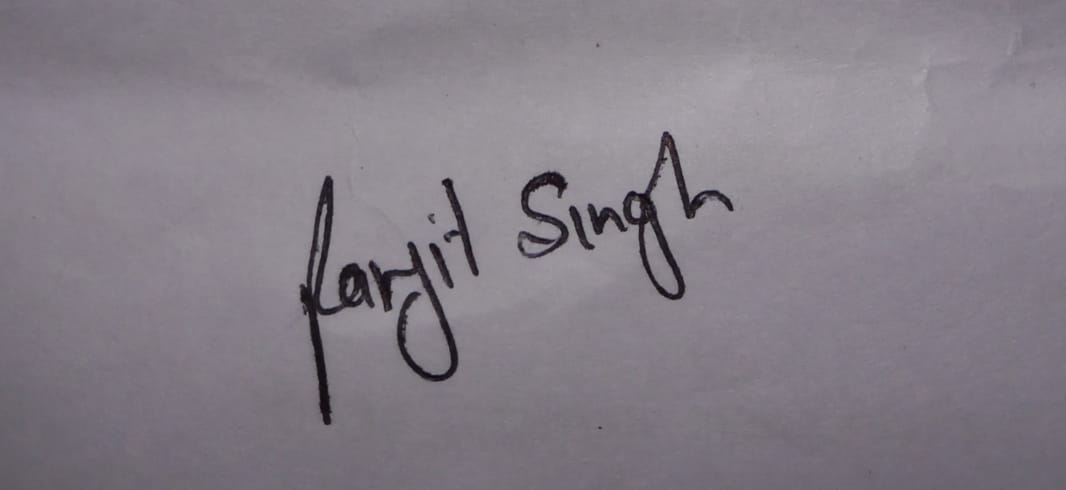 Ranjit Singh